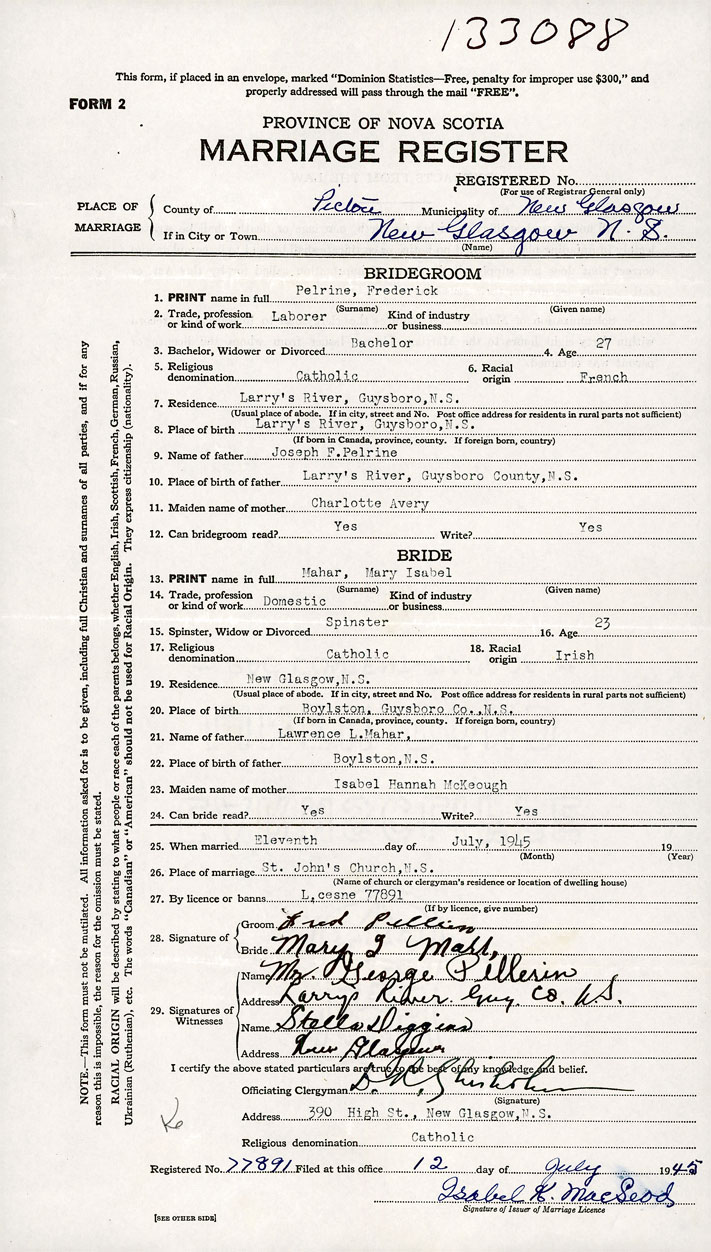 133088
This form, if placed in an envelope, marked "Dominion Statistics—Free, penalty for improper use $300," and
properly addressed will pass through the mail "FREE".
FORM 2
PROVINCE OF NOVA SCOTIA
MARRIAGE REGISTER
REGISTERED No.
(For use of Registrar General only)
PLACE OF MARRIAGE
County of Pictou Municipality of New Glasgow
If in City or Town New Glasgow N.S.
(Name)
BRIDEGROOM
1. PRINT name in full Pelrine, Frederick
(Surname) (Given name)
2. Trade, profession or kind of work Laborer Kind of industry or business
3. Bachelor, Widower or Divorced Bachelor 4. Age 27
5. Religious denomination Catholic 6. Racial origin French
7. Residence Larry's River, Guysboro,N.S.
(Usual place of abode. If in city, street and No. Post office address for residents in rural parts not sufficient)
8. Place of birth Larry's River, Guysboro,N.S.
(If born in Canada, province, county. If foreign born, country)
9. Name of father Joseph F.Pelrine
10. Place of birth of father Larry's River, Guysboro County,N.S.
11. Maiden name of mother Charlotte Avery
12. Can bridegroom read? Yes Write? Yes
BRIDE
13. PRINT name in full Mahar, Mary Isabel
(Surname) (Given name)
14. Trade, profession or kind of work Domestic Kind of industry or business
15. Spinster, Widow or Divorced Spinster 16. Age 23
17. Religious denomination Catholic 18. Racial origin Irish
19. Residence New Glasgow,N.S.
(Usual place of abode. If in city, street and No. Post office address for residents in rural parts not sufficient)
20. Place of birth Boylston, Guysboro Co.,N.S.
(If born in Canada, province, county. If foreign born, country)
21. Name of father Lawrence L.Mahar,
22. Place of birth of father Boylston,N.S.
23. Maiden name of mother Isabel Hannah McKeough
24. Can bride read? Yes Write? Yes
25. When married Eleventh day of July, 1945 19
(Month) (Year)
26. Place of marriage St. John's Church,N.S.
(Name of church or clergyman's residence or location of dwelling house)
27. By licence or banns L,cesne 77891
(If by licence, give number)
28. Signature of
Groom Fred Pellerin
Bride Mary I
29. Signatures of Witnesses
Name Mr. George Pellerin
Address Larrys River Guy Co. N.S.
Name Stella Diggins
Address New Glasgow
I certify the above stated particulars are true to the best of my knowledge and belief.
Officiating Clergyman Chisholm
(Signature)
Address 390 High St., New Glasgow,N.S.
Religious denomination Catholic
Registered No. 77891 Filed at this office 12 day of July 1945
Isabel K. MacLeod
Signature of Issuer of Marriage Licence
[SEE OTHER SIDE]
NOTE.—This form must not be mutilated. All information asked for is to be given, including full Christian and surnames of all parties, and if for any
reason this is impossible, the reason for the omission must be stated.
RACIAL ORIGIN will be described by stating to what people or race each of the parents belongs, whether English, Irish, Scottish, French, German, Russian,
Ukrainian (Ruthenian), etc. The words "Canadian" or "American" should not be used for Racial Origin. They express citizenship (nationality).